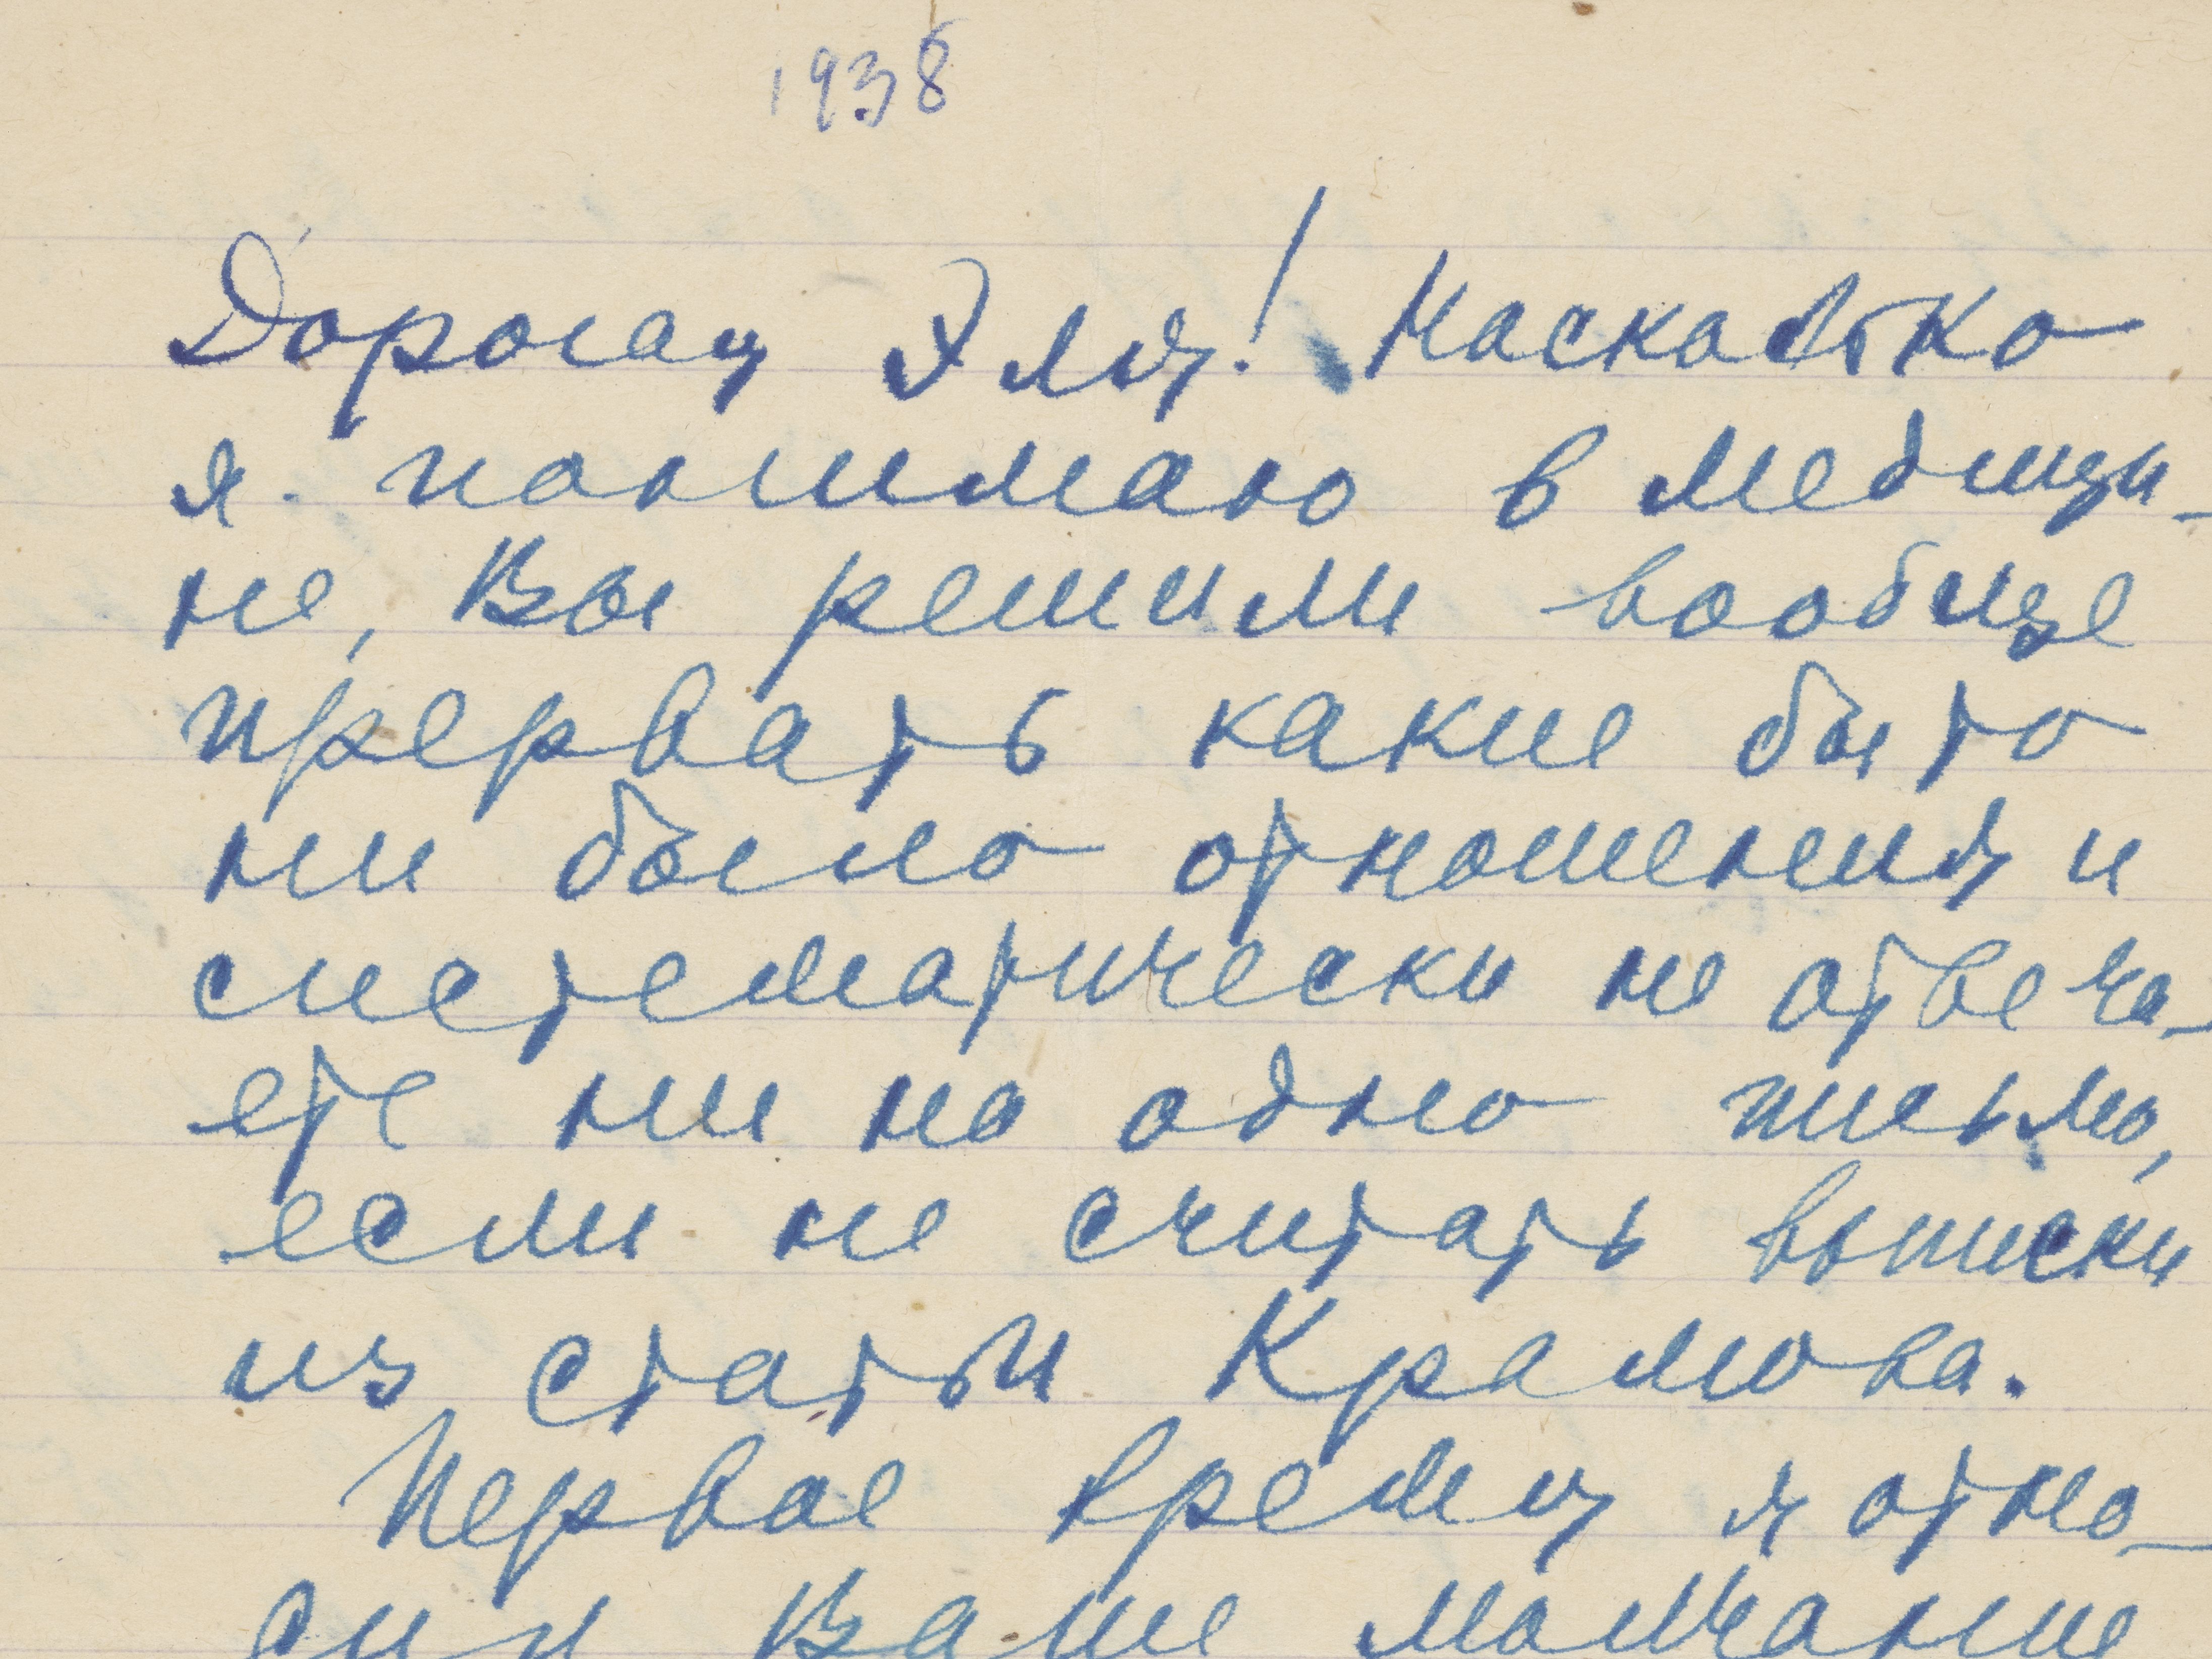 1938
Дорогая Эля! Насколько
я понимаю в медици-
не, Вы решили вообще
прервать какие бы то
ни было отношения и
систематически не отвеча-
ете ни на одно письмо,
если не считать выписки
из статьи Крамова.
Первое время я отно-
сил Ваше молчание